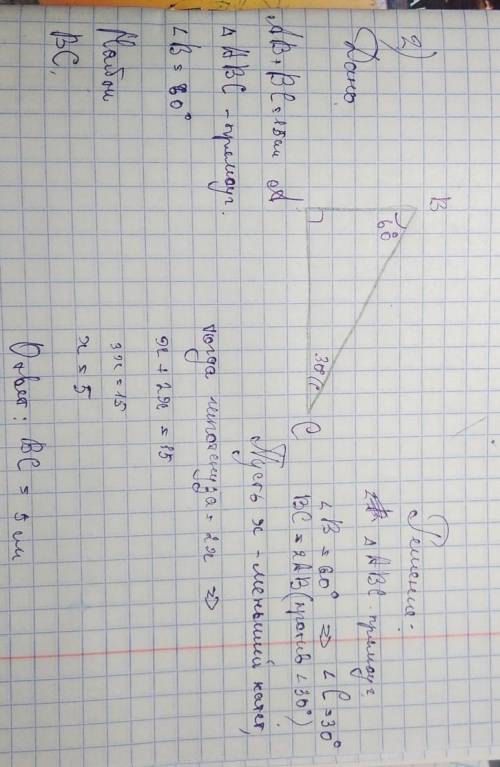 2)
Дано:
AB + BC = 15 см
△ ABC - прямоуг.
∠B = 60°
Найти
BC.
A
B
C
60
30°
Решение:
△ ABC - прямоуг.
∠B = 60° ⇒ ∠C = 30°
BC = 2AB (против ∠30°)
Пусть x - меньший катет,
тогда гипотенуза = 2x ⇒
x + 2x = 15
3x = 15
x = 5
Ответ: BC = 5 см